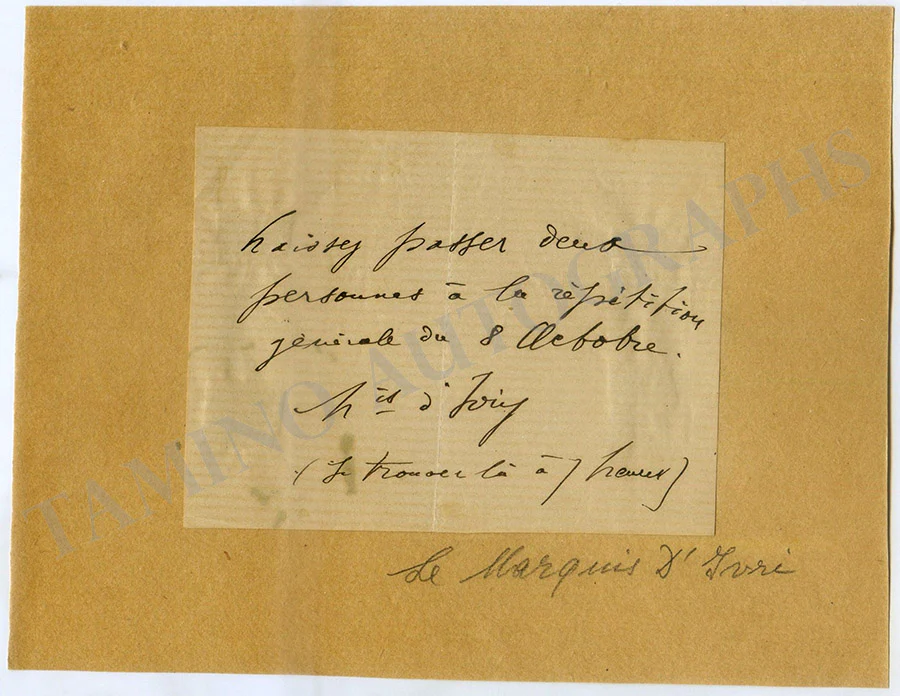 Laissez passer deux
personnes à la répétition
générale du 8 Octobre.
Mis d'Ivry
(Se trouver là à 7 heures)
Le Marquis D'Ivri
TAMINO AUTOGRAPHS